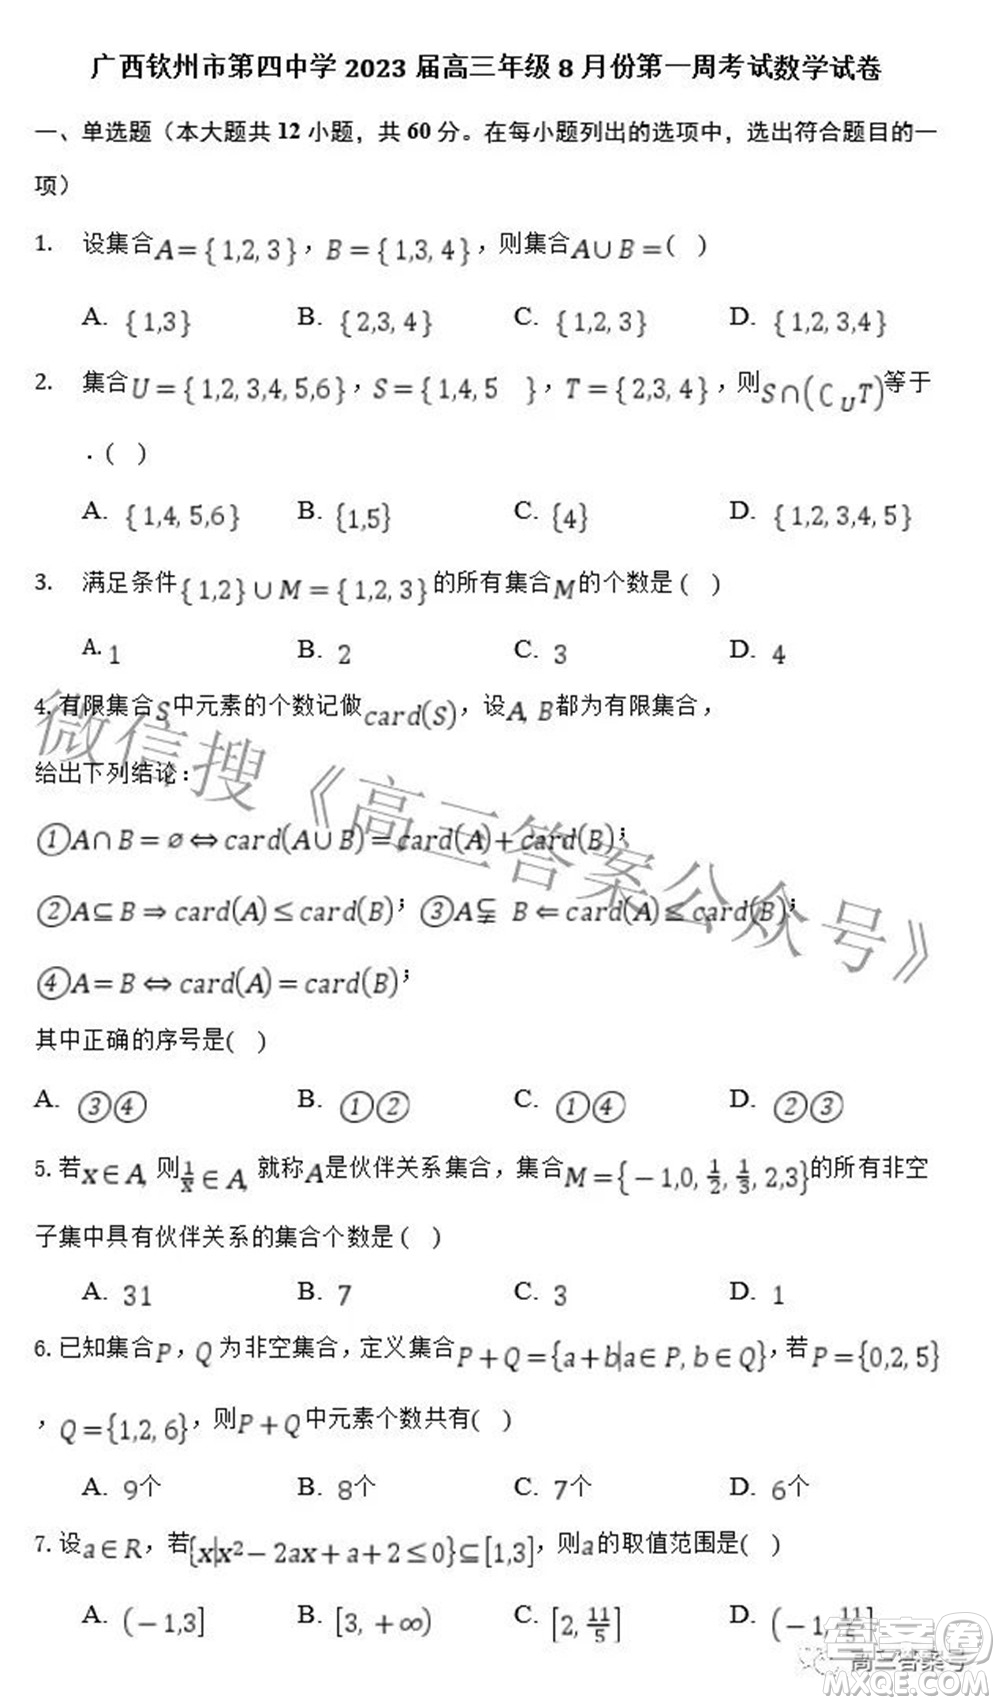 广西钦州市第四中学 2023 届高三年级 8 月份第一周考试数学试卷
一、单选题（本大题共 12 小题，共 60 分。在每小题列出的选项中，选出符合题目的一
项）
1. 设集合A={1,2,3}，B={1,3,4}，则集合A∪B=( )
A. {1,3} B. {2,3,4} C. {1,2,3} D. {1,2,3,4}
2. 集合U={1,2,3,4,5,6}，S={1,4,5 }，T={2,3,4}，则S∩(∁UT)等于
.( )
A. {1,4,5,6} B. {1,5} C. {4} D. {1,2,3,4,5}
3. 满足条件{1,2}∪M={1,2,3}的所有集合M的个数是 ( )
A. 1 B. 2 C. 3 D. 4
4. 有限集合S中元素的个数记做card(S)，设A, B都为有限集合，
给出下列结论：
①A∩B=∅⇔card(A∪B)=card(A)+card(B)；
②A⊆B⇒card(A)≤card(B)；③A⫋ B⇐card(A)≤card(B)；
④A=B⇔card(A)=card(B)；
其中正确的序号是( )
A. ③④ B. ①② C. ①④ D. ②③
5. 若x∈A, 则1/x∈A, 就称A是伙伴关系集合，集合M={-1,0,1/2,1/3,2,3}的所有非空
子集中具有伙伴关系的集合个数是 ( )
A. 31 B. 7 C. 3 D. 1
6. 已知集合P，Q 为非空集合，定义集合P+Q={a+b|a∈P,b∈Q}，若P={0,2,5}
，Q={1,2,6}，则P+Q中元素个数共有( )
A. 9个 B. 8个 C. 7个 D. 6个
7. 设a∈R，若{x|x²-2ax+a+2≤0}⊆[1,3]，则a的取值范围是( )
A. (-1,3] B. [3,+∞) C. [2,11/5] D. (-1,11/5]
微信搜《高三答案公众号》
答案圈
高三答案号